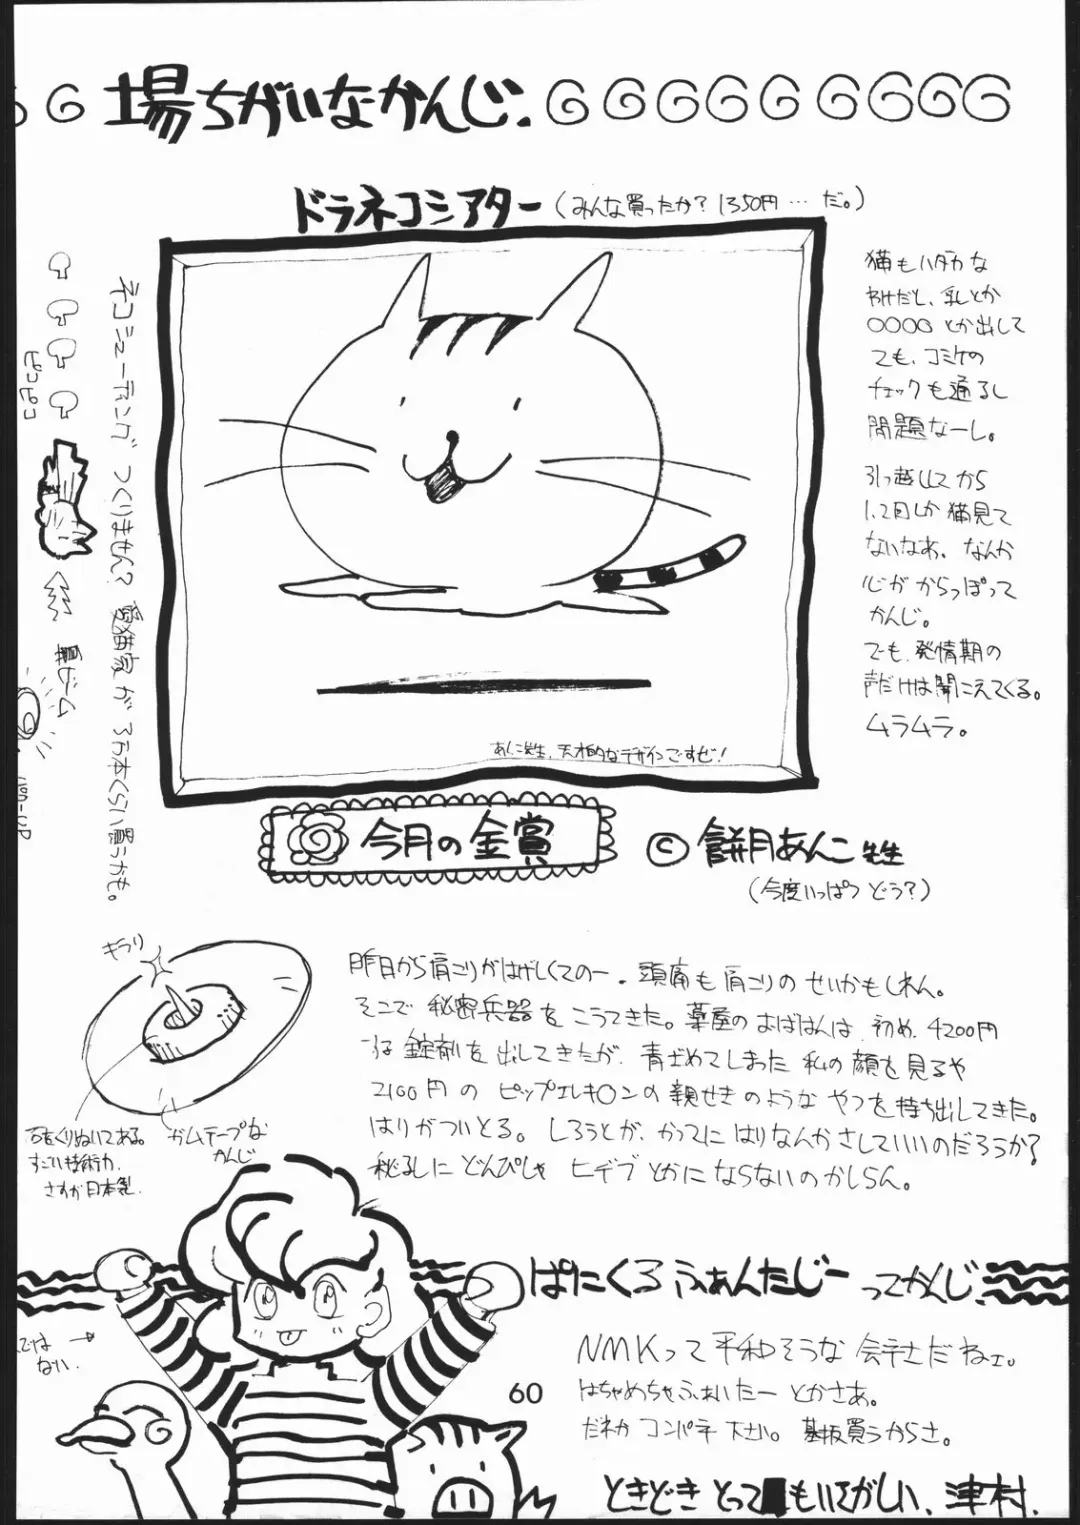 場ちがいなかんじ.
ドラネコシアター(みんな買ったか?1350円…だ。)
猫もハダカな
わけだし、乳とか
○○○○とか出して
ても、コミケの
チェックも通るし
問題なーし。
引っ越してから
1、2回しか猫見て
ないなあ、なんか
心がからっぽって
かんじ。
でも、発情期の
声だけは聞こえてくる。
ムラムラ。
ネコシューティングつくりません?愛猫家が3万本くらい買うかも。
ピコピコ
ビーム
あんこ先生、天才的なデザインですぜ!
今月の金賞
©餅月あんこ先生
(今度いっぱつどう?)
キラリ
石をくりぬいてある。
すごい技術力.
さすが日本製.
ガムテープな
かんじ
昨日から肩こりがはげしくてのー.頭痛も肩こりのせいかもしれん。
そこで秘密兵器をこうてきた。薬屋のおばはんは、初め、4200円
な錠剤を出してきたが、青ざめてしまった私の顔を見るや
2100円のピップエレキ○ンの親せきのようなやつを持ち出してきた。
はりがついとる。しろうとが、かってにはりなんかさしていいのだろうか?
秘孔にどんぴしゃヒデブとかにならないのかしらん。
ぱにくるふぁんたじーってかんじ.
ではない.→
NMKって平和そうな会社だねェ。
はちゃめちゃふぁいたーとかさあ。
だれかコンパチ下さい。基板買うからさ。
60
ときどきとってもいてがしい、津村.